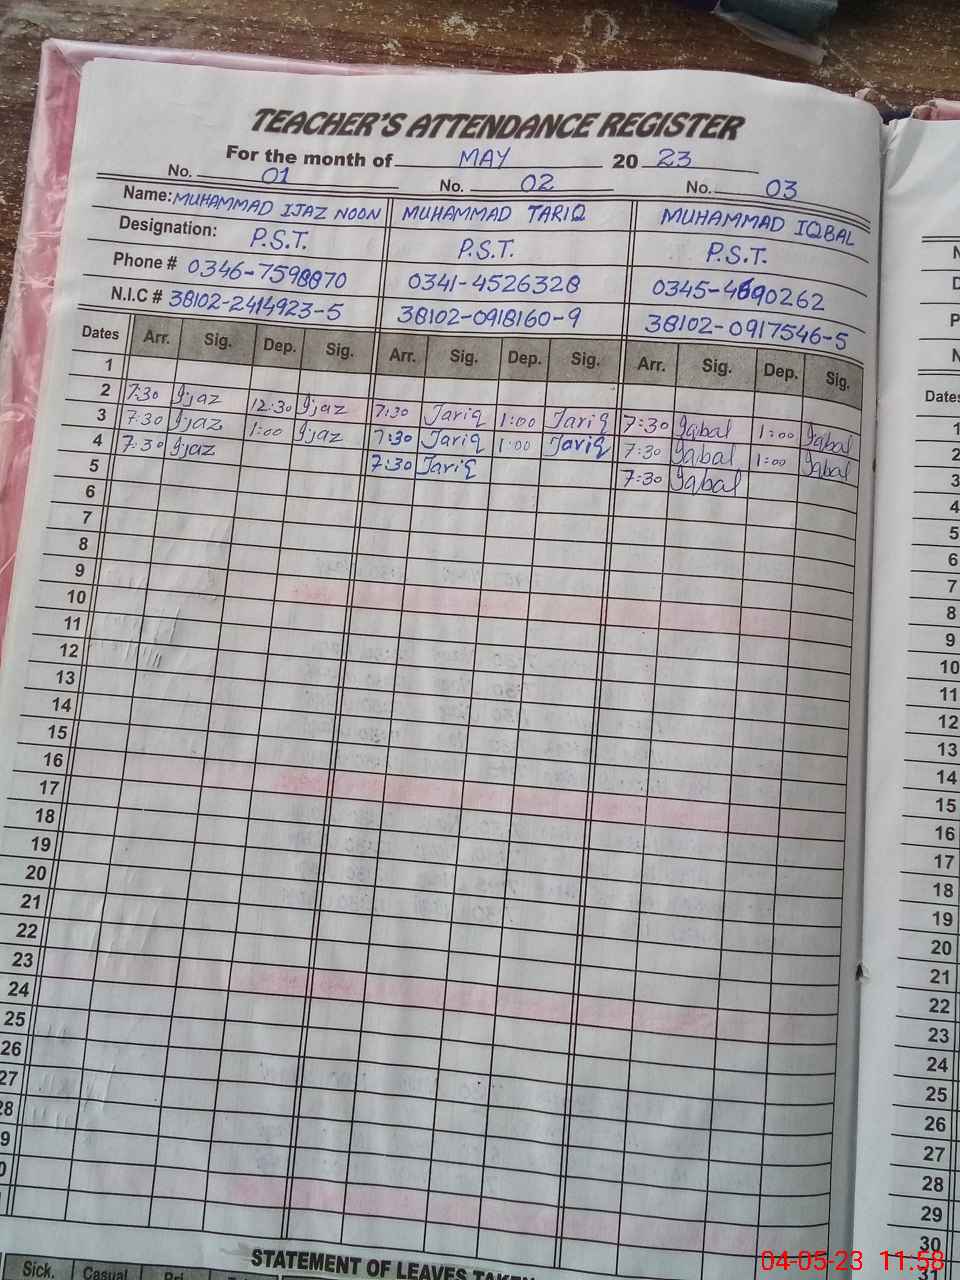 TEACHER'S ATTENDANCE REGISTER
For the month of MAY 20 23
No. 01 No. 02 No. 03
Name: MUHAMMAD IJAZ NOON MUHAMMAD TARIQ MUHAMMAD IQBAL
Designation: P.S.T. P.S.T. P.S.T.
Phone # 0346-7598870 0341-4526328
N.I.C # 38102-2414923-5 38102-0918160-9 38102-0917546-5
Dates Arr. Sig. Dep. Sig. Arr. Sig. Dep. Sig. Arr. Sig. Dep. Sig.
1
2 7:30 Ijaz 12:30 Ijaz 7:30 Tariq 1:00 Tariq 7:30 Iqbal 1:00 Iqbal
3 7:30 Ijaz 1:00 Ijaz 7:30 Tariq 1:00 Tariq 7:30 Iqbal 1:00 Iqbal
4 7:30 Ijaz 7:30 Tariq 7:30 Iqbal
5
6
7
8
9
10
11
12
13
14
15
16
17
18
19
20
21
22
23
24
25
26
27
28
STATEMENT OF LEAVES TAKEN
Sick. Casual
Dates
1
2
3
4
5
6
7
8
9
10
11
12
13
14
15
16
17
18
19
20
21
22
23
24
25
26
27
28
29
30
31
04-05-23 11:58